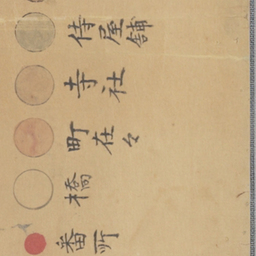 侍屋舗
寺社
町在々
橋
番所